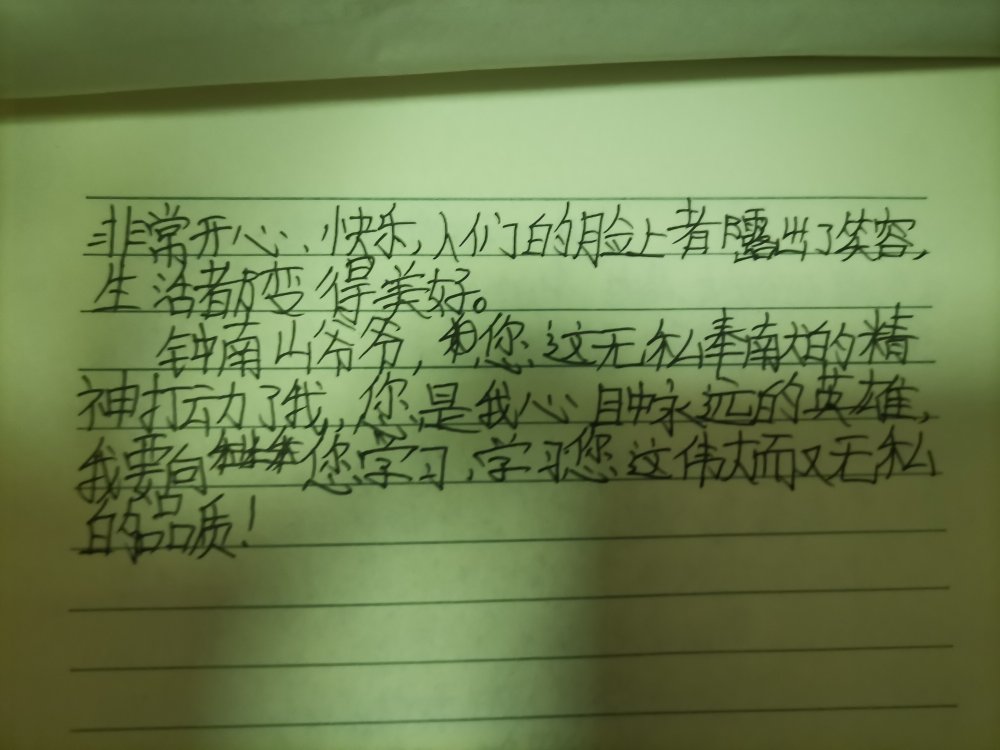 非常开心、快乐,人们的脸上都露出了笑容,
生活都变得美好。
钟南山爷爷,您这无私奉献的精
神打动了我,您是我心目中永远的英雄,
我要向您学习,学习您这伟大而又无私
的品质!